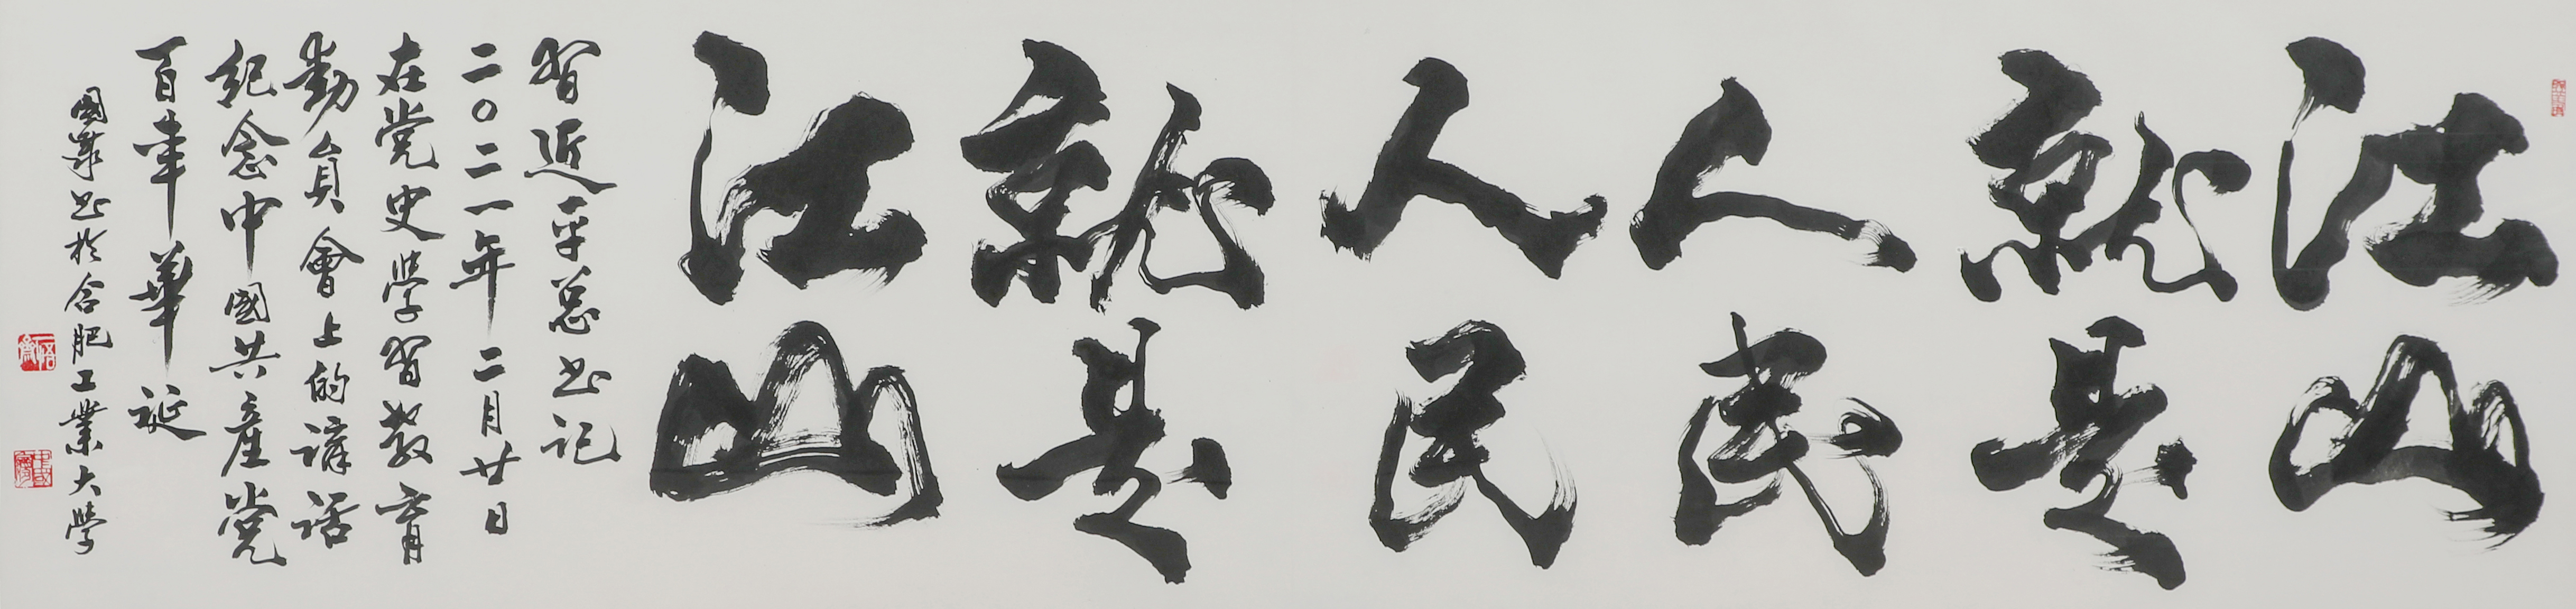 江山
就是
人民
人民
就是
江山
習近平总书记
二〇二一年二月廿日
在党史學習教育
動員會上的講話
紀念中國共産党
百年華誕
國華书於合肥工業大學